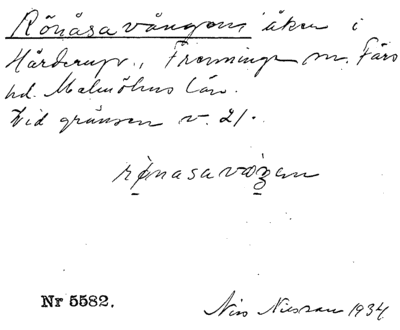 Rönåsavången åker i
Hårderup., Fremminge sn. Färs
hd. Malmöhus län.
Vid gränsen v. 21.
rønasavaŋen
Nr 5582.
Nils Nilsson 1934